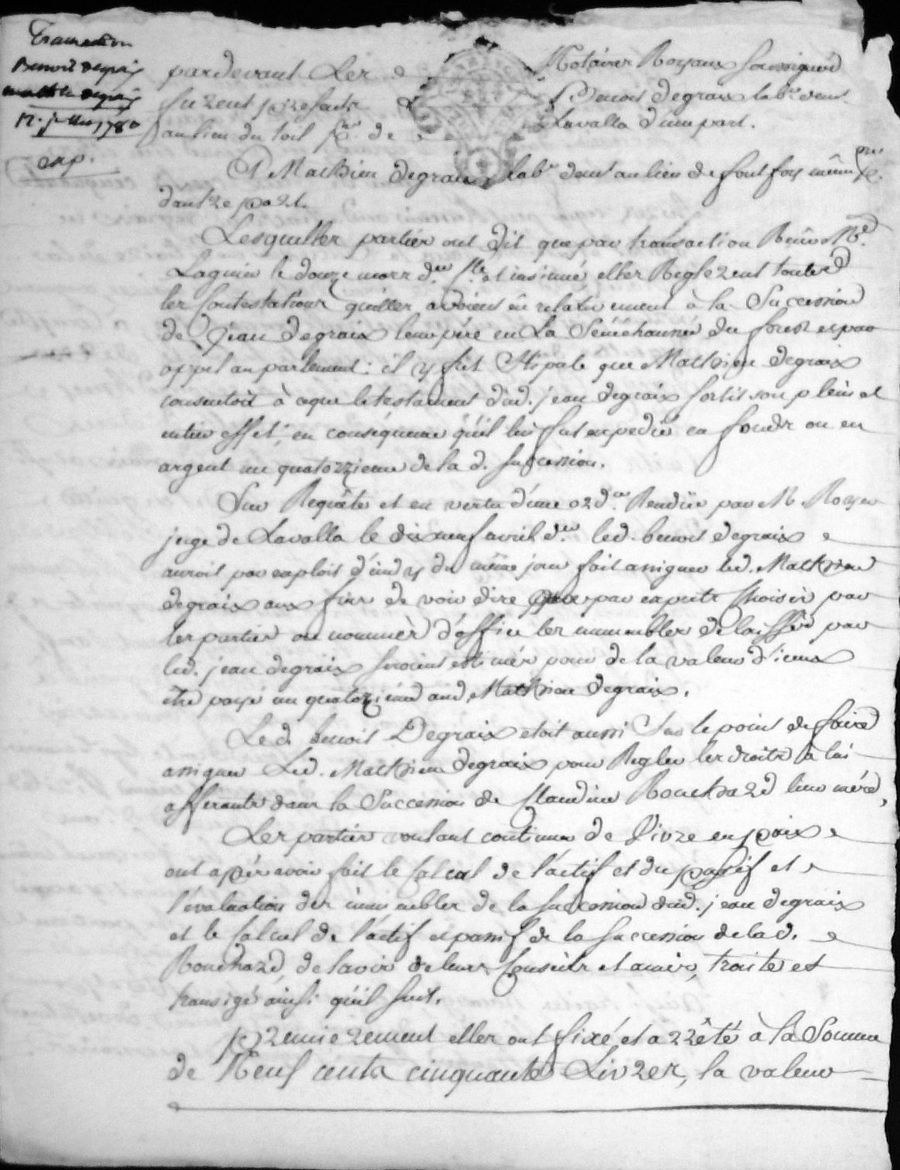 Transaction
Benoit degraix
mathieu degraix
12. juillet 1780
exp.
pardevant Les Notaires Royaux soussignés
furent presents Sr. Benoit degraix labr. demt.
au lieu du toil psse. de Lavalla d'une part.
Sr. Mathieu degraix labr. demt. au lieu de font fois même psse.
d'autre part.
Lesquelles parties ont dit que par transaction Reçüe Me.
Laguin le douze mars dr. et insinué elles Reglerent toutes
les Contestations qu'elles avoient eu relativement à la Succession
de Jean degraix leur père en La Senechaussée du forest et par
appel au parlement: il y fut Stipulé que Mathieu degraix
consentoit à ce que le testament dud. jean degraix sortit son plein et
entier effet en conséquence qu'il lui fut expedié en fonds ou en
argent un quatorzieme de la d. succession.
Sur Requête et en vertu d'une ordce. Rendüe par M
juge de Lavalla le dix neuf avril dr. led. benoit degraix
auroit par exploit d' du même jour fait assigner led. Mathieu
degraix aux fins de voir dire que par experts Choisis par
les parties ou nommés d'office les immeubles delaissés par
led. jean degraix seroient estimés pour de la valeur d'iceux
être payé un quatorzieme aud. Mathieu degraix.
Led. benoit Degraix etoit aussi Sur le point de faire
assigner Led. Mathieu degraix pour Regler les droits à lui
afferants dans la Succession de Claudine Bouchard leur mère,
Les parties voulant continuer de Vivre en paix
ont après avoir fait le Calcul de l'actif et du passif et
l'evaluation des immeubles de la succession dud. jean degraix
et le Calcul de l'actif et passif de la succession de lad.
Bouchard, de l'avis de leurs Conseils et amis, traité et
transigé ainsi qu'il suit.
premierement elles ont fixé et arrêté à la Somme
de Neuf cents cinquante Livres, la valeur